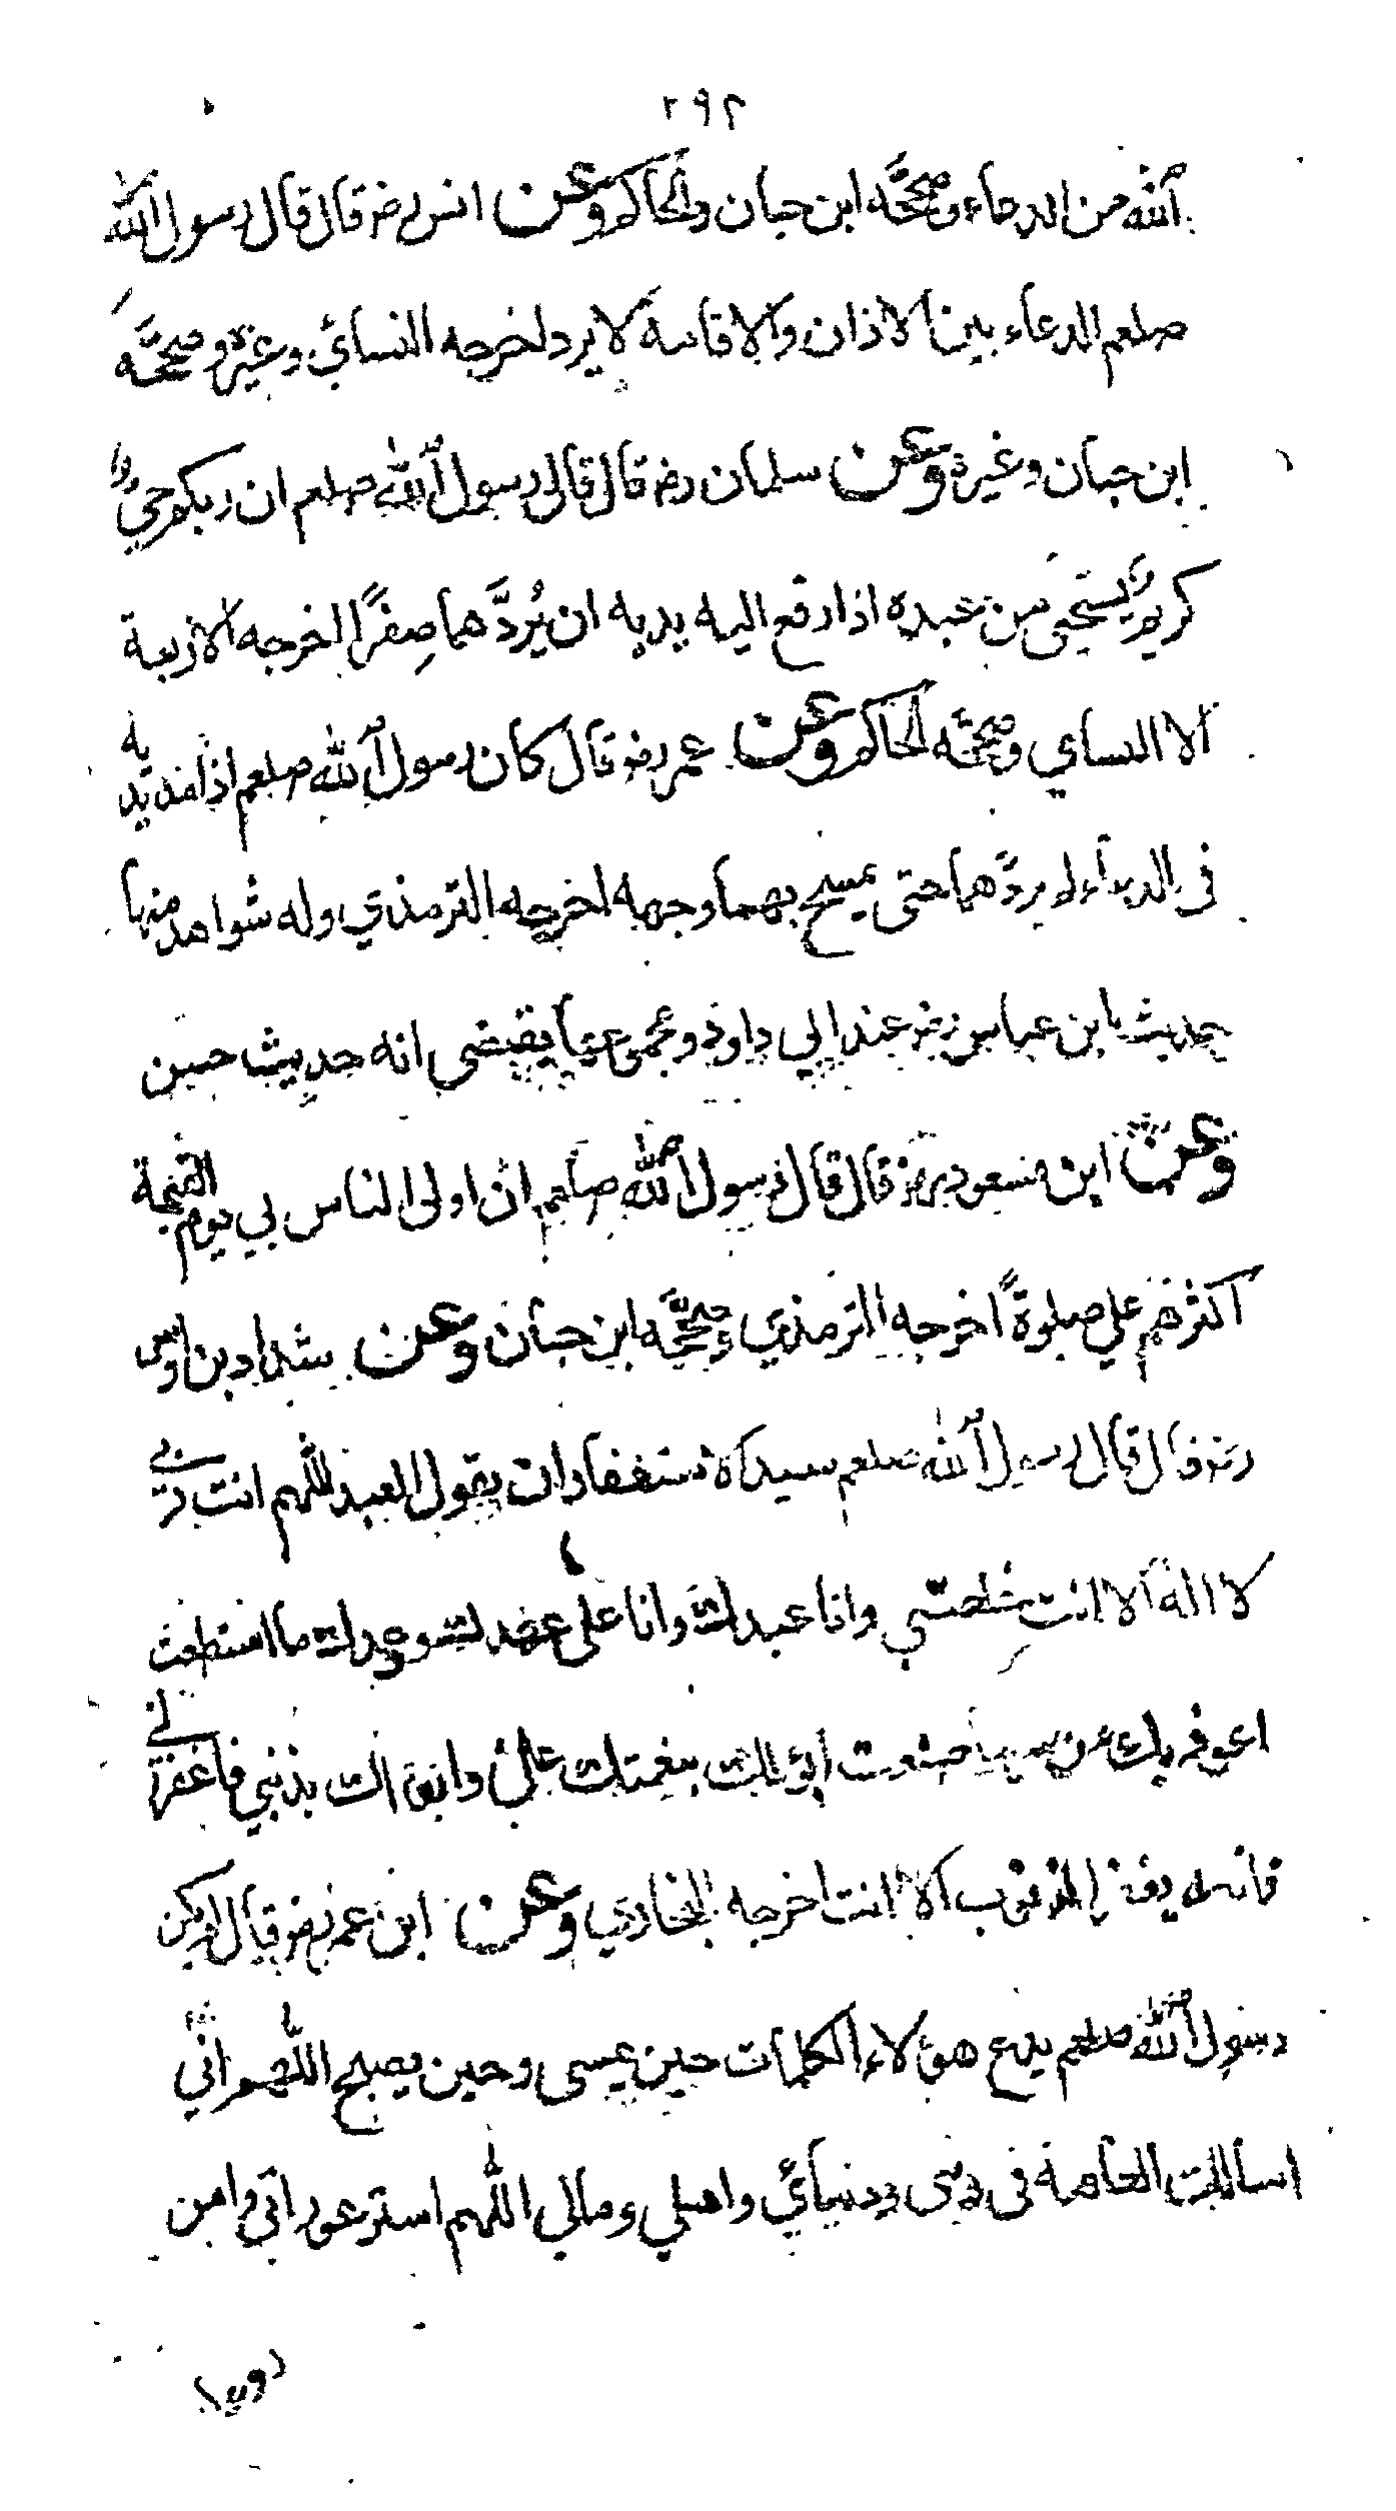 ٢٩٢
الله من الدعاء وصححه ابن حبان والحاكم وعن انس رضہ قال قال رسول الله
صلعم الدعاء بين الاذان والاقامة لا يرد اخرجه النسائي وغيره وصححه
ابن حبان وغيره وعن سلمان رضہ قال قال رسول الله صلعم ان ربكم حيي
كريم يستحيى من عبده اذا رفع اليه يديه ان يردّهما صِفرًا اخرجه الاربعة
الا النساي وصححه الحاكم وعن عمر رضہ قال كان رسول الله صلعم اذا مد يديه
فى الدعاء لم يردّهما حتى يمسح بهما وجهه اخرجه الترمذي وله شواهد منها
حديث ابن عباس رضہ عند ابي داود ومجموعها يقتضى انه حديث حسن
وعن ابن مسعود رضہ قال قال رسول الله صلعم ان اولى الناس بي يوم القيمة
اكثرهم علي صلوةً اخرجه الترمذي وصححه ابن حبان وعن شداد بن اوس
رضہ قال قال رسول الله صلعم سيد الاستغفار ان يقول العبد اللهم انت ربي
لا اله الا انت خلقتني وانا عبدك وانا على عهدك ووعدك ما استطعت
اعوذ بك من شر ما صنعت ابؤ لك بنعمتك علي وابؤ لك بذنبي فاغفر لي
فانه لا يغفر الذنوب الا انت اخرجه البخاري وعن ابن عمر رضہ قال لم يكن
رسول الله صلعم يدع هؤلاء الكلمات حين يمسى وحين يصبح اللهم اني
اسالك العافية فى ديني ودنياي واهلي ومالي اللهم استر عوراتي وامن